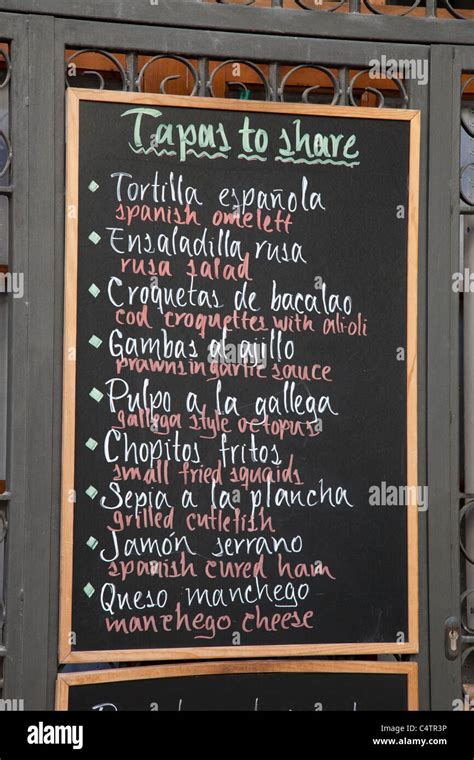 Tapas to share
Tortilla española
spanish omelett
Ensaladilla rusa
rusa salad
Croquetas de bacalao
cod croquettes with ali-oli
Gambas al ajillo
prawns in garlic sauce
Pulpo a la gallega
gallega style octopus
Chopitos fritos
small fried squaids
Sepia a la plancha
grilled cutlefish
Jamón serrano
spanish cured ham
Queso manchego
manchego cheese
alamy
Image ID: C4TR3P
www.alamy.com